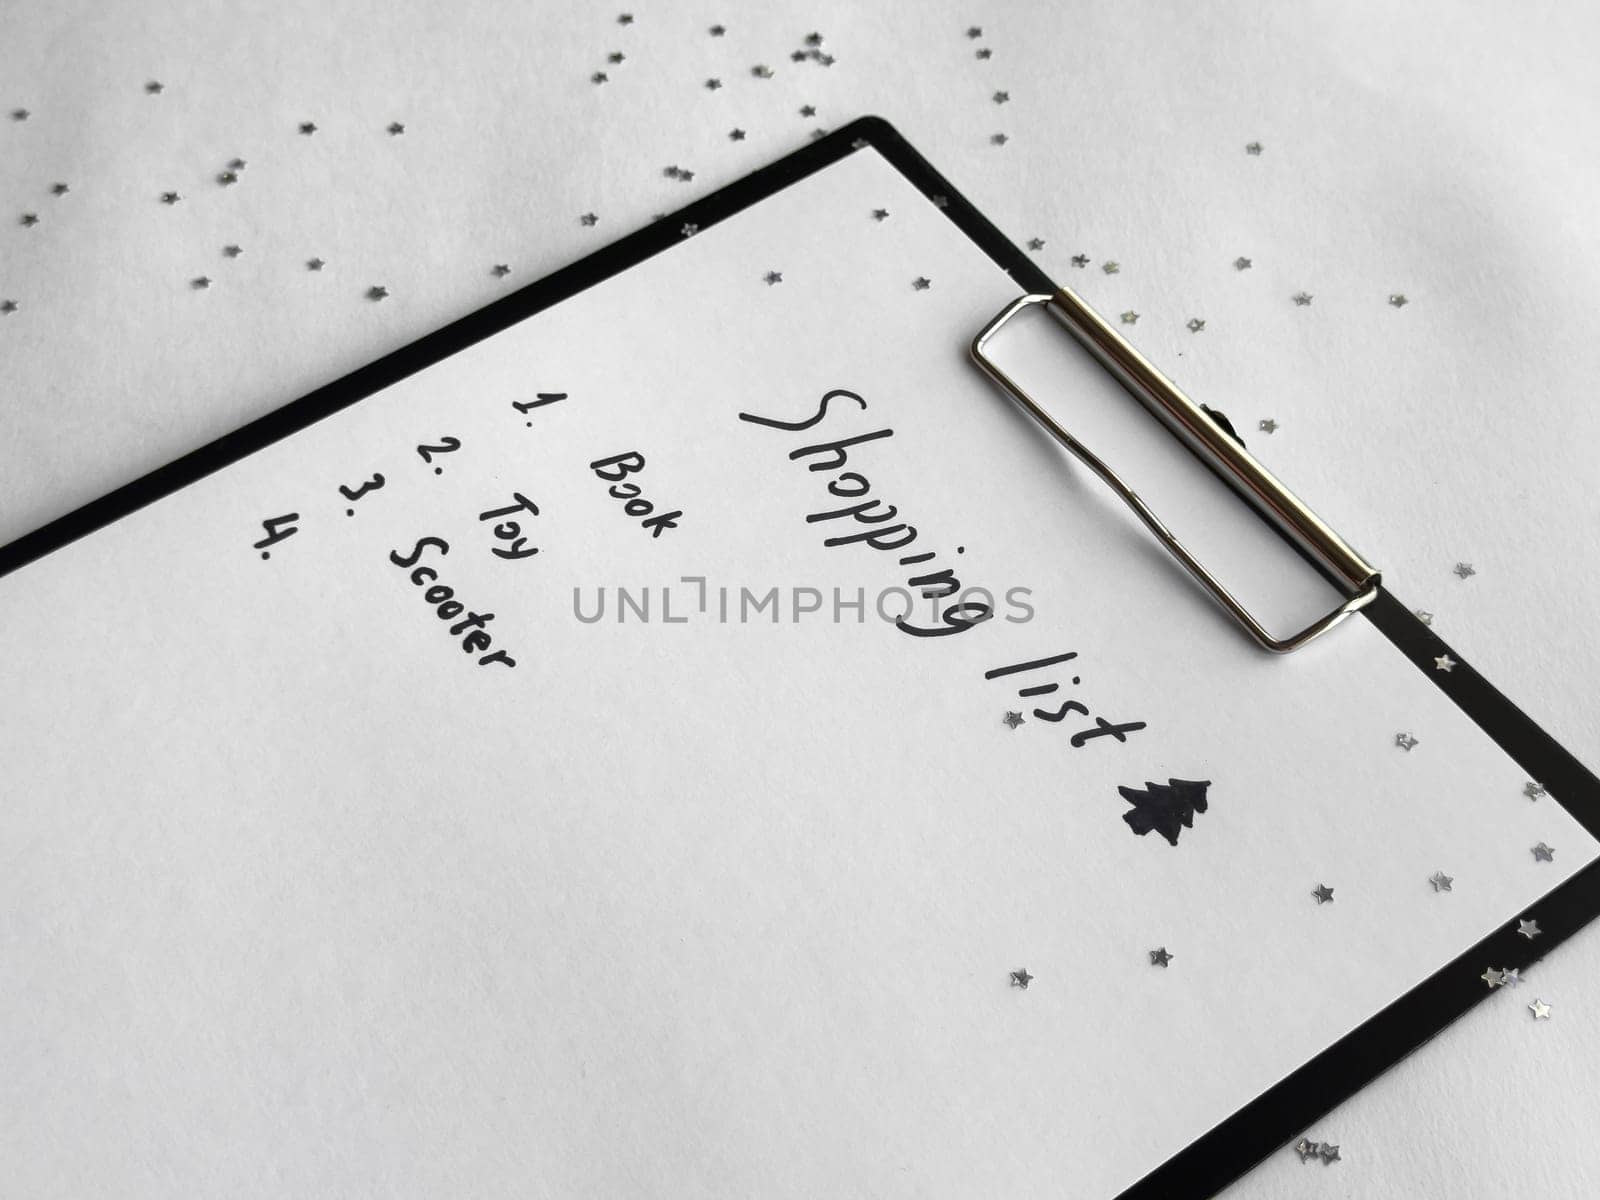 Shopping list
1. Book
2. Toy
3. Scooter
4.
UNLIMPHOTOS